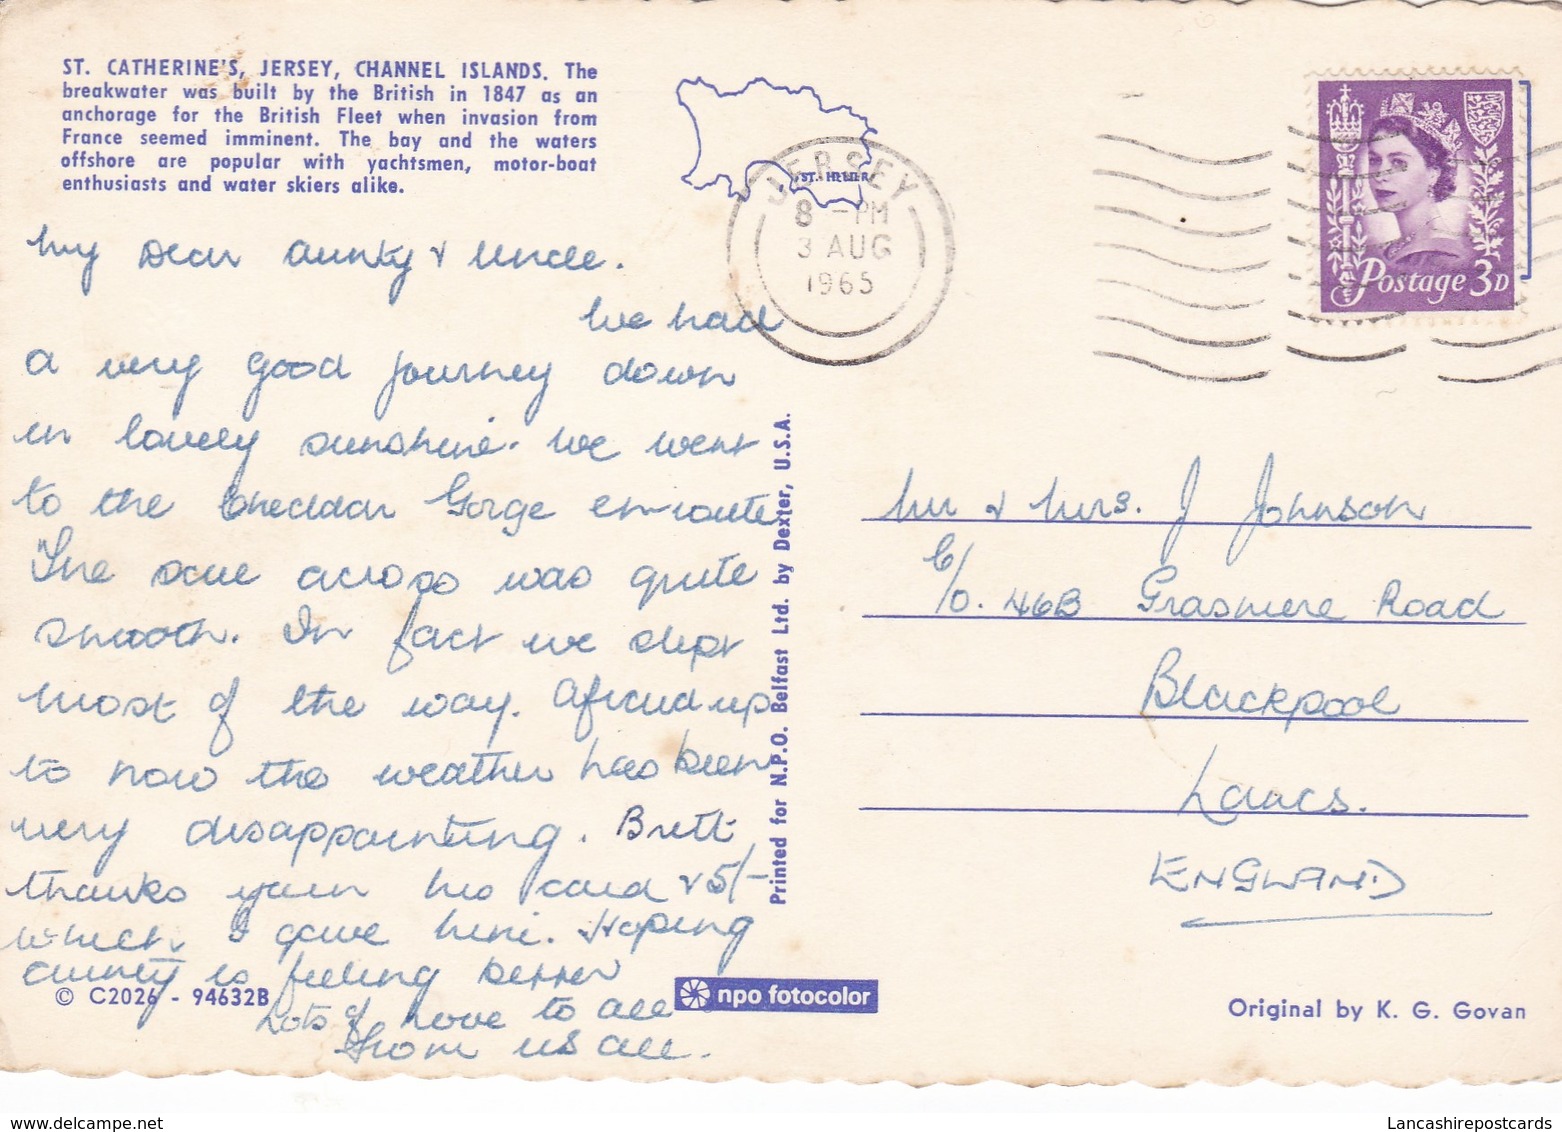 ST. CATHERINE'S, JERSEY, CHANNEL ISLANDS. The
breakwater was built by the British in 1847 as an
anchorage for the British Fleet when invasion from
France seemed imminent. The bay and the waters
offshore are popular with yachtsmen, motor-boat
enthusiasts and water skiers alike.
My Dear Aunty & Uncle.
We had
a very good journey down
in lovely sunshine. We went
to the Cheddar Gorge en-route
The sail across was quite
smooth. In fact we slept
most of the way. Afraid up
to now the weather has been
very disappointing. Brett
thanks you for his card & 5/-
which I gave him. Hoping
aunty is feeling better
Lots of love to all
From us all.
© C2026 - 94632B
Printed for N.P.O. Belfast Ltd. by Dexter, U.S.A.
ST. HELIER
JERSEY
8 - PM
3 AUG
1965
Postage 3D
Mr & Mrs. J Johnson
C/O. 46B Grasmere Road
Blackpool
Lancs.
ENGLAND
npo fotocolor
Original by K. G. Govan
Lancashirepostcards